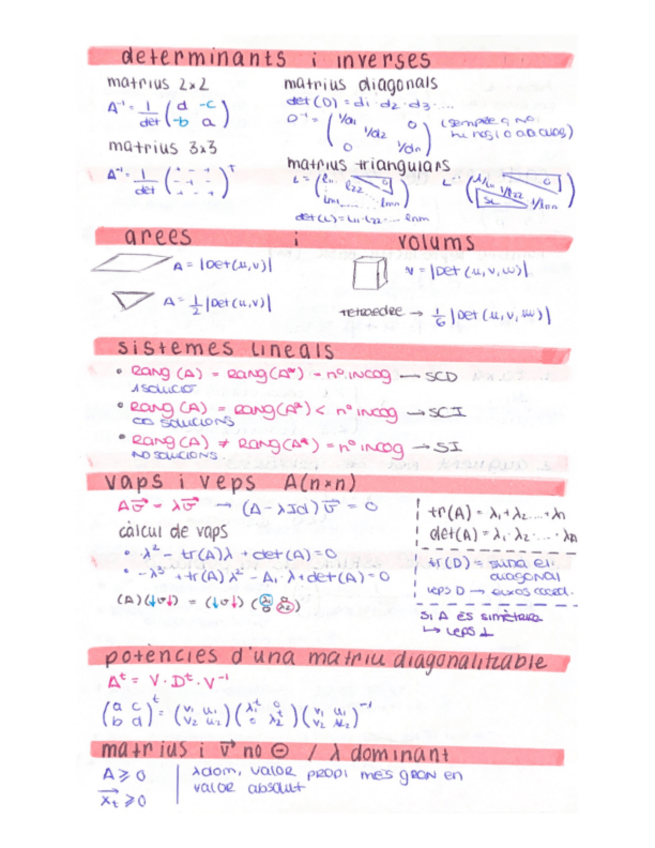 determinants i inverses
matrius 2x2
A⁻¹ = 1/det ( d -c
-b a )
matrius 3x3
A⁻¹ = 1/det ( + - +
- + -
+ - + )ᵗ
matrius diagonals
det(D) = d1·d2·d3·...
D⁻¹ = ( 1/d1 0
1/d2
0 1/dn ) (sempre q no
matrius triangulars
L = ( l11 0
l22
ln1 ... lnn )
L⁻¹ ( 1/l11 0
1/l22
1/lnn )
det(L) = l11·l22·... lnn
arees i volums
A = |Det(u,v)|
A = 1/2 |Det(u,v)|
v = |Det(u,v,w)|
tetraedre → 1/6 |Det(u,v,w)|
sistemes lineals
• Rang(A) = Rang(A*) = nº incog → SCD
1 solució
• Rang(A) = Rang(A*) < nº incog → SCI
∞ solucions
• Rang(A) ≠ Rang(A*) = nº incog → SI
no solucions
vaps i veps A(n×n)
Av⃗ = λv⃗ → (A - λId)v⃗ = 0
càlcul de vaps
• λ² - tr(A)λ + det(A) = 0
• -λ³ + tr(A)λ² - A₁·λ + det(A) = 0
(A)(↓v↓) = (↓v↓) (λ1 0
0 λ2)
tr(A) = λ1+λ2...+λn
det(A) = λ1·λ2·...·λn
tr(D) = suma el
diagonal
veps D → eixos coord.
si A és simètrica
↳ veps ⊥
potències d'una matriu diagonalitzable
Aᵗ = V·Dᵗ·V⁻¹
(a c
b d)ᵗ = (v1 u1
v2 u2) (λ1ᵗ 0
0 λ2ᵗ) (v1 u1
v2 u2)⁻¹
matrius i v⃗ no ⊖ / λ dominant
A ⩾ 0
x⃗t ⩾ 0
λdom, valor propi més gran en
valor absolut